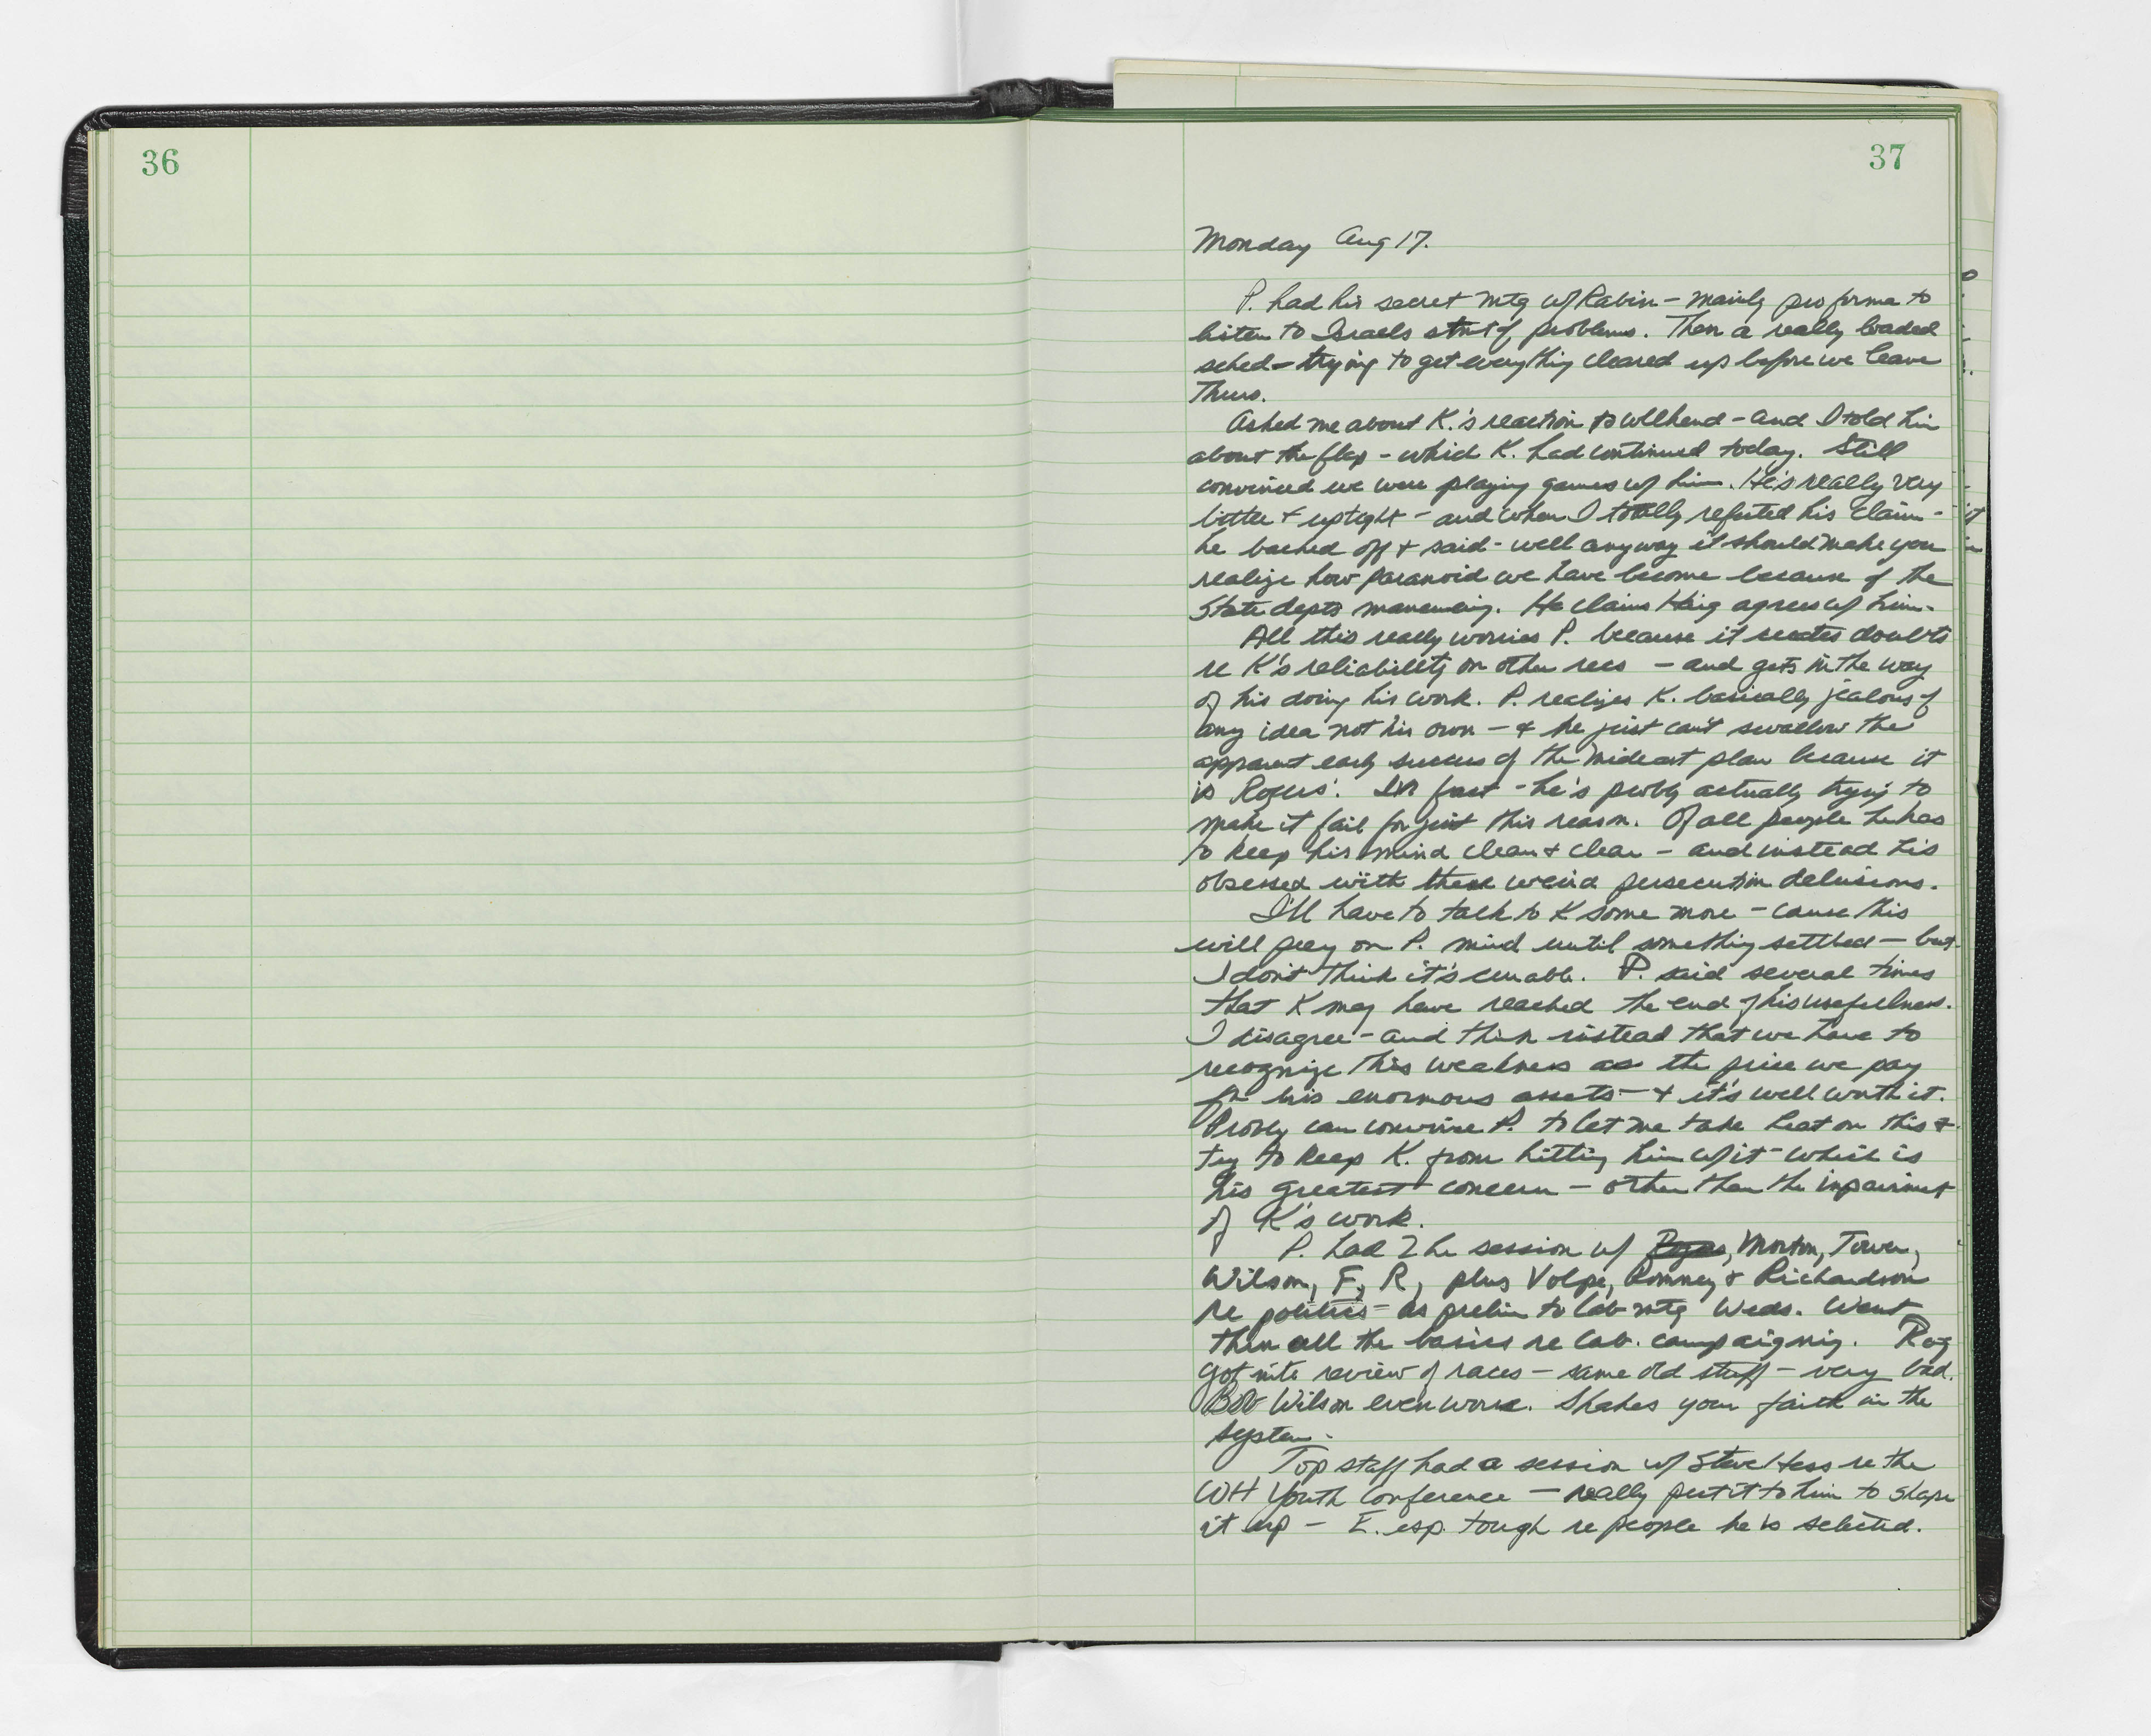 36
37
Monday Aug 17.
P. had his secret mtg w/ Rabin - mainly pro forma to
listen to Israels of problems. Then a really loaded
sched - trying to get everything cleared up before we leave
Thurs.
Asked me about K.'s reaction to wkend - and I told him
about the flap - which K. had continued today. Still
convinced we were playing games w/ him. He's really very
bitter & uptight - and when I totally refuted his claim -
he backed off & said - well anyway it should make you
realize how paranoid we have become because of the
State depts maneuvering. He claims Haig agrees w/ him.
All this really worries P. because it creates doubts
re K's reliability on other recs - and gets in the way
of his doing his work. P. realizes K. basically jealous of
any idea not his own - & he just can't swallow the
apparent early success of the Mideast plan because it
is Rogers'. In fact - he's probly actually trying to
make it fail for just this reason. Of all people he has
to keep his mind clean & clear - and instead his
obsessed with these weird persecution delusions.
I'll have to talk to K some more - cause this
will prey on P. mind until something settled - but
I don't think it's curable. P. said several times
that K may have reached the end of his usefullness.
I disagree - and think instead that we have to
recognize this weakness as the price we pay
for his enormous assets - & it's well worth it.
Probly can convince P. to let me take heat on this &
try to keep K. from hitting him w/ it - which is
his greatest concern - other than the impairment
of K's work.
P. had 2 hr session w/ Rogers, Morton, Tower,
Wilson, F, R, plus Volpe, Romney & Richardson
re politics - as prelim to Cab mtg Weds. Went
thru all the basics re Cab. campaigning. Rog
got into review of races - same old stuff - very bad.
Bob Wilson even worse. Shakes your faith in the
system.
Top staff had a session w/ Steve Hess re the
WH Youth Conference - really put it to him to shape
it up - E. esp. tough re people he is selected.